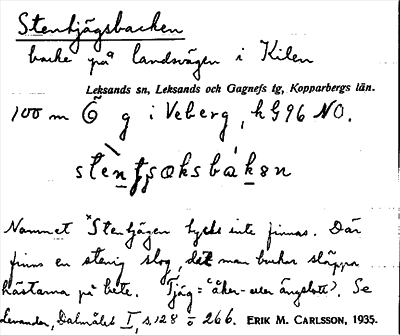 Stentjägsbacken
backe på landsvägen i Kilen
Leksands sn, Leksands och Gagnefs tg, Kopparbergs län.
100 m Ö g i Veberg, h G 96 NO.
Namnet "Stentjägen tycks inte finnas. Där
finns en stenig skog, det man brukar släppa
hästarna på bete. Tjäg = 'åker- eller ängslott'. Se
Levander, Dalmålet I, s. 128 o 266. ERIK M. CARLSSON, 1935.